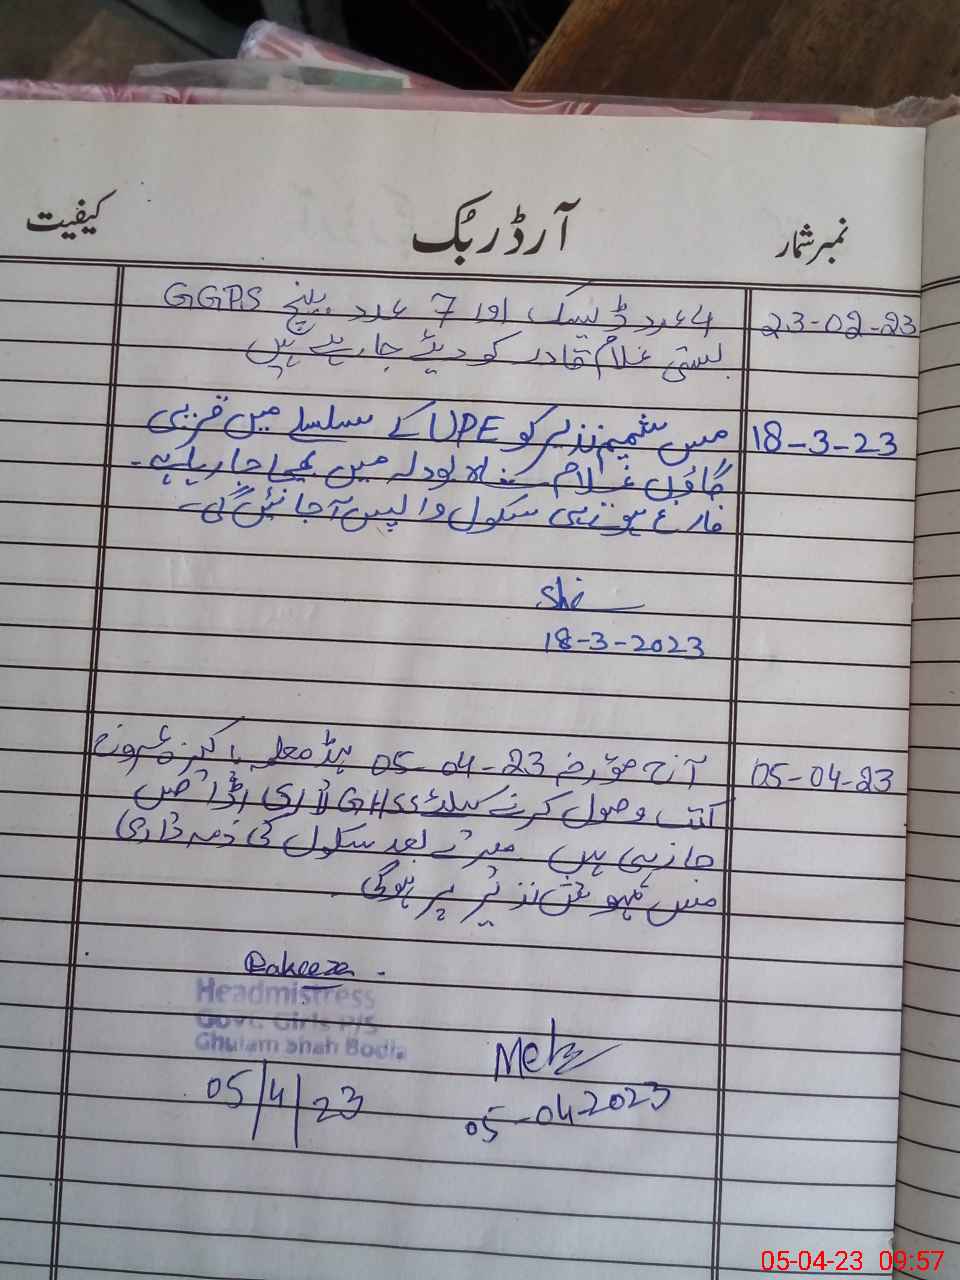 نمبر شمار آرڈر بُک کیفیت
23-02-23 4 عدد ڈیسک اور 7 عدد بینچ GGPS
بستی غلام قادر کو دیئے جا رہے ہیں
18-3-23 مس شمیم نذیر کو UPE کے سلسلے میں قریبی
گاؤں غلام شاہ بودلہ میں بھیجا جا رہا ہے۔
فارغ ہوتے ہی سکول واپس آ جائیں گی۔
Shi
18-3-2023
05-04-23 آج مورخہ 23-04-05 ہیڈ معلمہ پاکیزہ
کتب وصول کرنے کیلئے GHSS لاری اڈا
جا رہی ہیں میرے بعد سکول کی ذمہ داری
مس مہوش نذیر پر ہوگی۔
Pakeeza
Headmistress
Govt. Girls P/S
Ghulam Shah Bodla
05/4/23
Meh
05-04-2023
05-04-23 09:57